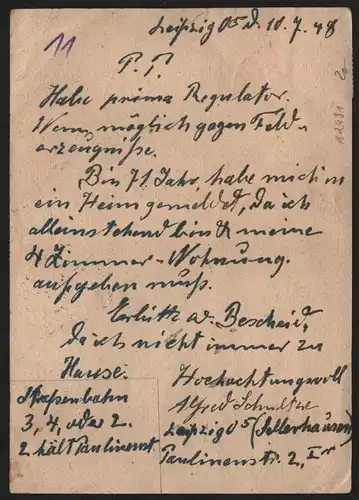 11
Leipzig O5 d. 10.7.48
20
12431
P. P.
Habe prima Regulator.
Wenn möglich gegen Feld-
erzeugnisse.
Bin 71 Jahr, habe mich in
ein Heim gemeldet, da ich
alleinstehend bin & meine
4 Zimmer-Wohnung
aufgeben muß.
Erbitte w. Bescheid,
da ich nicht immer zu
Hause.
Hochachtungsvoll
Alfred Schultze
Leipzig O5 (Sellerhausen)
Paulinenstr. 2, I r
Straßenbahn
3, 4, oder 2.
2 hält Paulinenst.